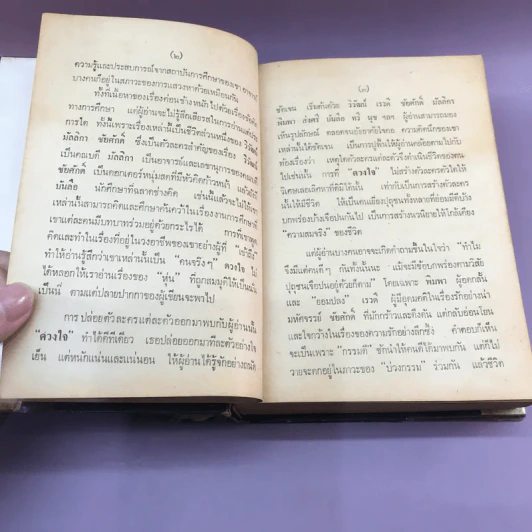 (๒)
ความรู้และประสบการณ์จากสถาบันการศึกษาของเขา
บางคนก็อยู่ในสภาวะของการแสวงหาด้วยเหมือนกัน
ทั้งที่เนื้อหาของเรื่องค่อนข้างหนักไปด้วยเรื่องรา
ทางการศึกษา แต่ผู้อ่านจะไม่รู้สึกเสียรสในการอ่านแต่ประ
การใด ทั้งนี้เพราะเรื่องเหล่านั้นเป็นชีวิตส่วนหนึ่งของ วิวัฒน์
มัลลิกา ชัยศักดิ์ ซึ่งเป็นตัวละครสำคัญของเรื่อง วิวัฒน์
เป็นคณบดี มัลลิกา เป็นอาจารย์และเลขานุการของคณบดี
ชัยศักดิ์ เป็นดอกเตอร์หนุ่มสดที่มีหัวคิดก้าวหน้า แล้วยังมี
บันลือ นักศึกษาที่ฉลาดช่างคิด เช่นนี้แล้วจะไม่ให้เขา
เหล่านั้นสามารถคิดและศึกษาค้นคว้าในเรื่องงานการศึกษาที่
เขาแต่ละคนมีบทบาทร่วมอยู่ด้วยกระไรได้ การที่เขาพูด
คิดและทำในเรื่องที่อยู่ในวงอาชีพของเขาอย่างผู้ที่ "เข้าถึง"
ทำให้อ่านรู้สึกว่าเขาเหล่านั้นเป็น "คนจริงๆ" ดวงใจ ไม่
ได้หลอกให้เราอ่านเรื่องของ "หุ่น" ที่ถูกสมมุติให้เป็นนั่น
เป็นนี่ ตามแต่ปลายปากกาของผู้เขียนจะพาไป
การ ปล่อยตัวละครแต่ละตัวออกมาพบกับผู้อ่านนั้น
"ดวงใจ" ทำได้ดีทีเดียว เธอปล่อยออกมาทีละตัวอย่างใจ
เย็น แต่หนักแน่นและแน่นอน ให้ผู้อ่านได้รู้จักอย่างถนัด
(๓)
ชัดเจน เริ่มต้นด้วย วิวัฒน์ มัลลิกา เรวดี ชัยศักดิ์ มัลลิกา
พิมพา ส่งศรี บันลือ ทวี นุช ฯลฯ ผู้อ่านสามารถมอง
เห็นรูปลักษณ์ ตลอดจนถึงอาศัยใจคอ ความคิดนึกของเขา
เหล่านี้ได้ชัดเจน เป็นการปูพื้นให้ผู้อ่านคล้อยตามไปกับ
ท้องเรื่องว่า เหตุใดตัวละครแต่ละตัวจึงดำเนินชีวิตของตน
ไปเช่นนั้น การที่ "ดวงใจ" ไม่สร้างตัวละครตัวใดให้
วิเศษเลอเลิศอย่างที่ดีหาที่ติมิได้นั้น เท่ากับเป็นการสร้างตัวละคร
นั้นให้มีชีวิต ให้เป็นคนเยี่ยงปุถุชนทั้งหลายที่ย่อมมีดีบ้าง
บกพร่องบ้างเจือปนกันไป เป็นการสร้างนวนิยายให้ใกล้เคียง
"ความสมจริง" ของชีวิต
แต่ผู้อ่านบางคนอาจจะเกิดคำถามขึ้นในใจว่า "ทำไม
จึงมีแต่คนดีๆ กันทั้งนั้นนะ แม้จะมีข้อบกพร่องตามวิสัย
ปุถุชนเจือปนอยู่ด้วยก็ตาม" โดยเฉพาะ พิมพา ผู้อดกลั้น
และ "ยอมปลง" เรวดี ผู้มีอุดมคติในเรื่องรักอย่างน่า
มหัศจรรย์ ชัยศักดิ์ ที่มักกร้าวและดึงดัน แต่กลับอ่อนโยน
และใจกว้างในเรื่องของความรักอย่างลึกซึ้ง คำตอบก็เห็น
จะเป็นเพราะ "กรรมดี" ชักนำให้คนดีได้มาพบกัน แต่ก็ไม่
วายจะตกอยู่ในภาวะของ "บ่วงกรรม" ร่วมกัน แล้วชีวิต